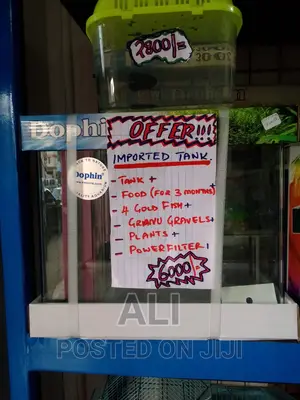 2800/=
Dophin
OFFER!!!
IMPORTED TANK
Dophin
- TANK +
- FOOD (FOR 3 MONTHS) +
- 4 GOLD FISH +
- GRANU GRAVELS +
- PLANTS +
- POWERFILTER!
6000/-
ALI
POSTED ON JIJI